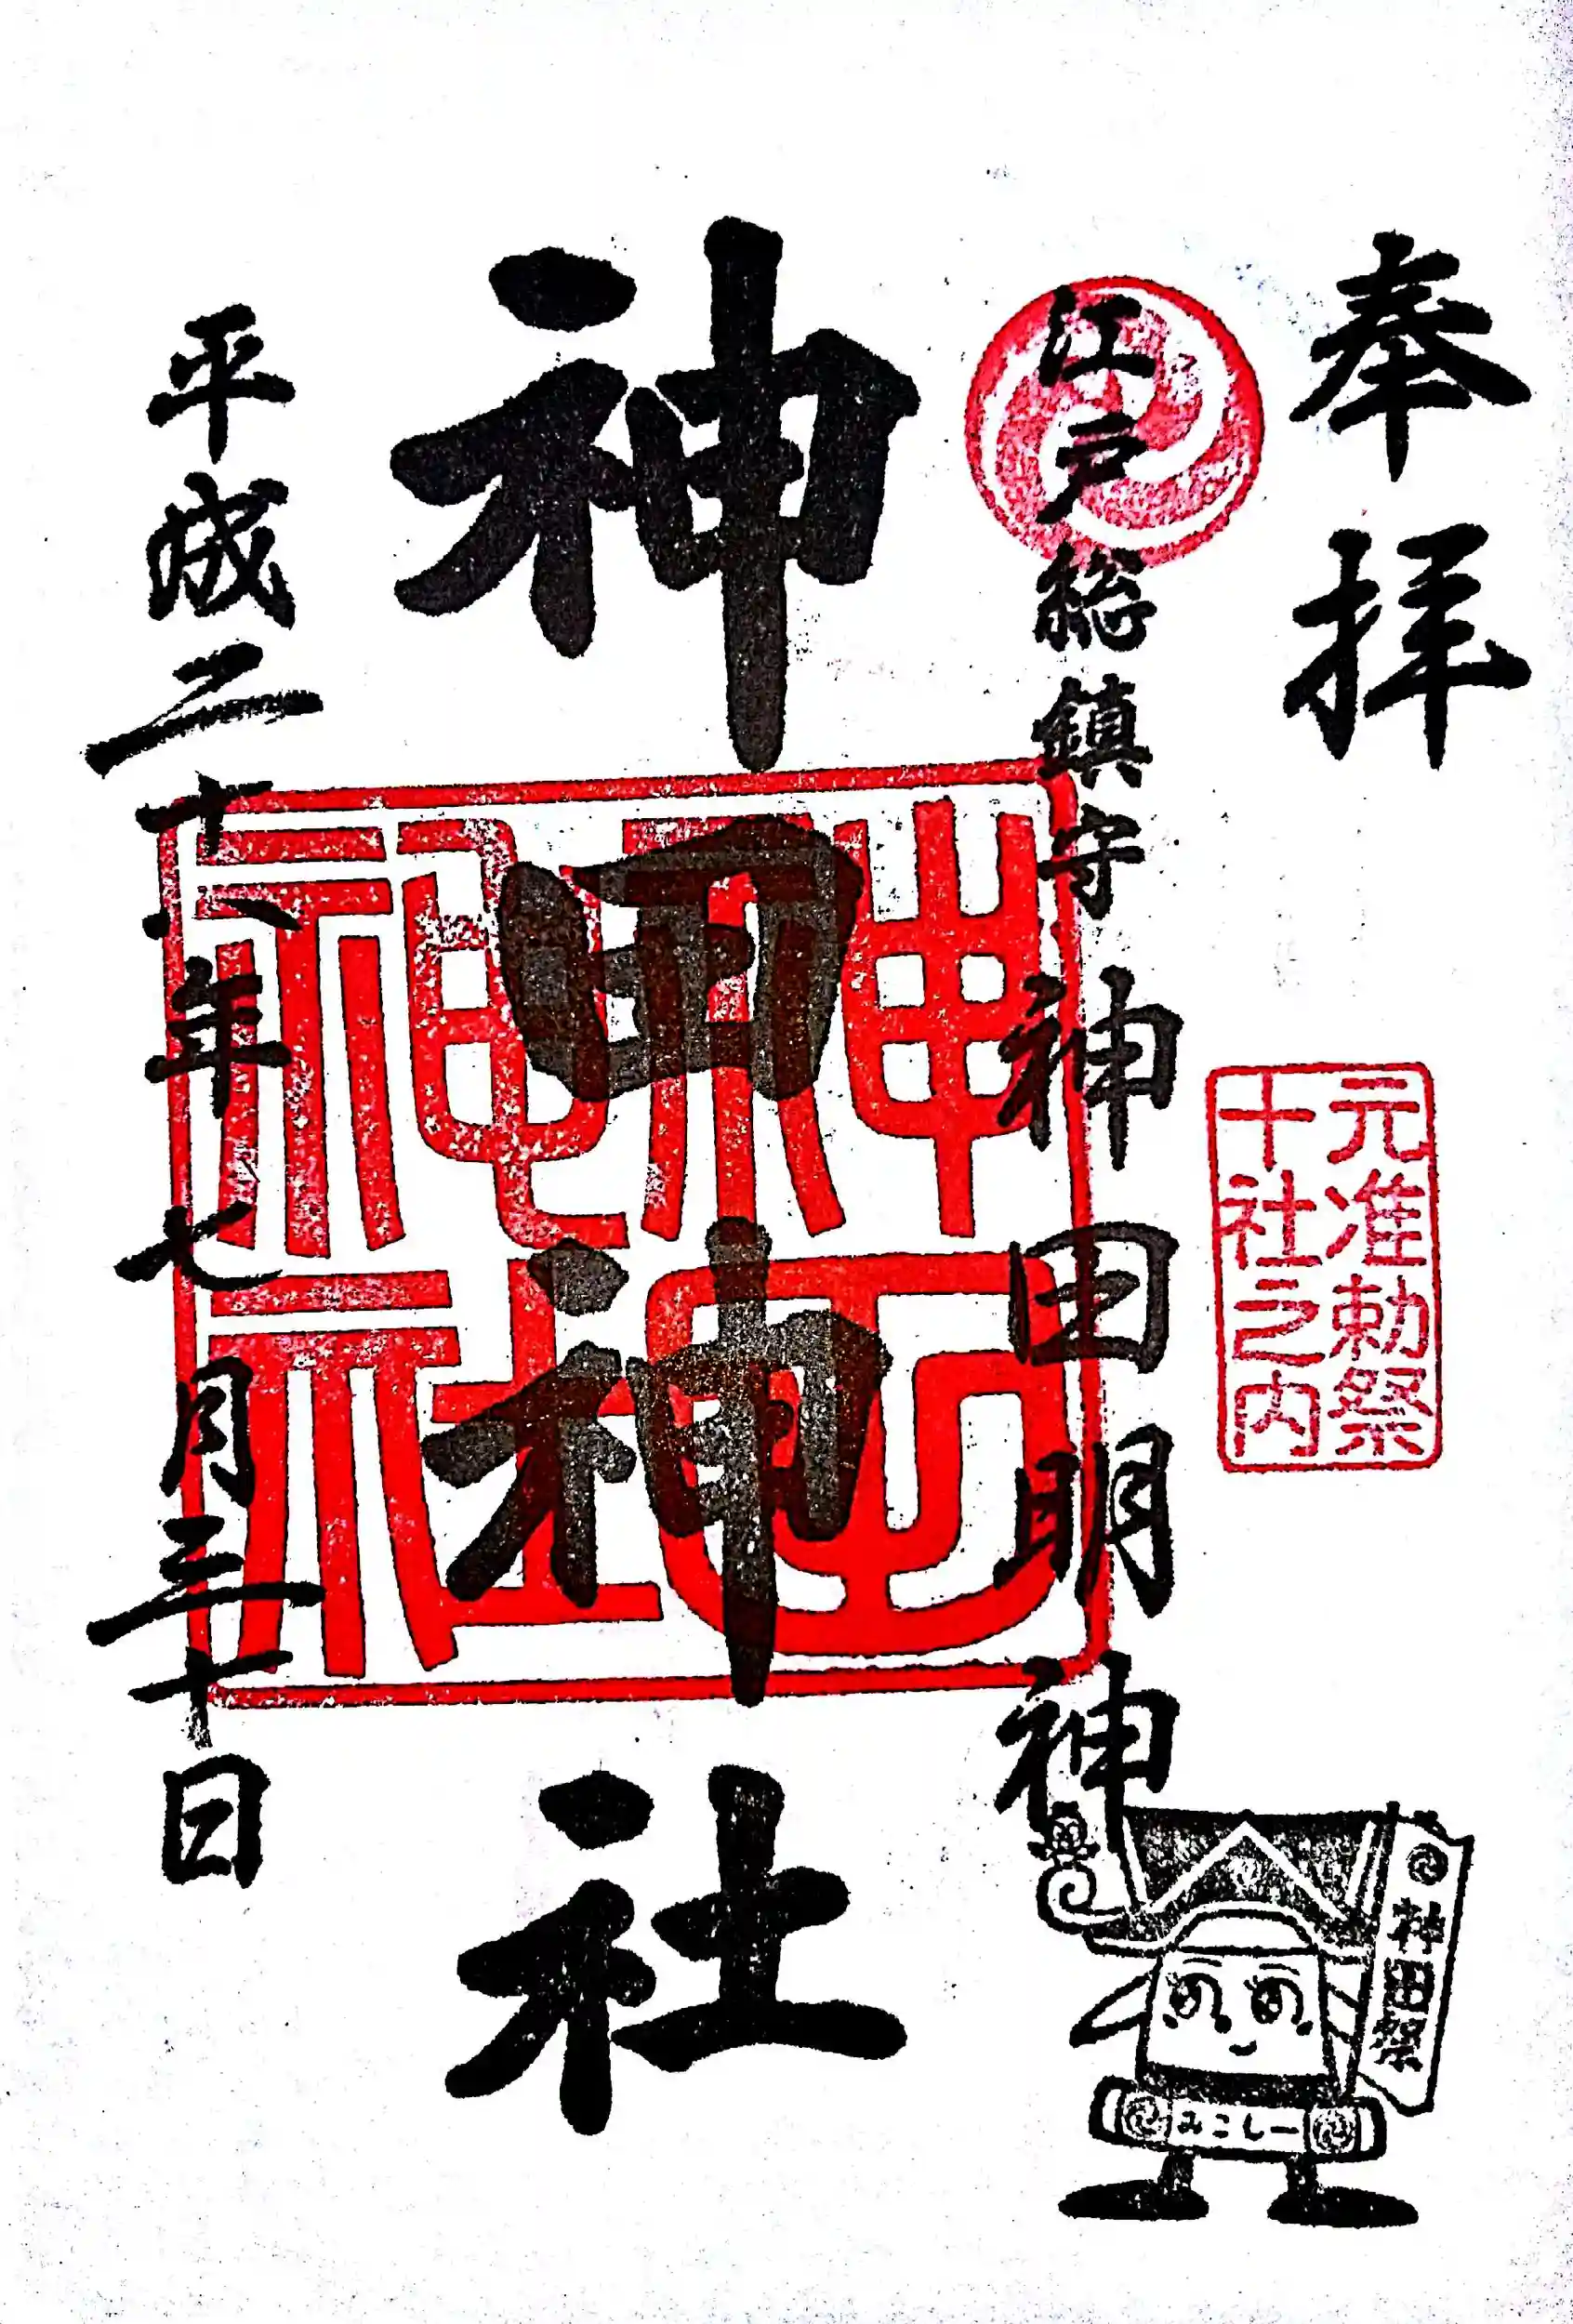 奉拝
元准勅祭
十社之内
江戸総鎮守 神田明神
神田神社
神田
神社
平成二十八年七月三十日
神田祭
みこしー